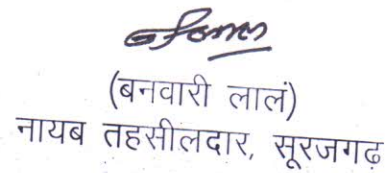 (बनवारी लालं)
नायब तहसीलदार, सूरजगढ़